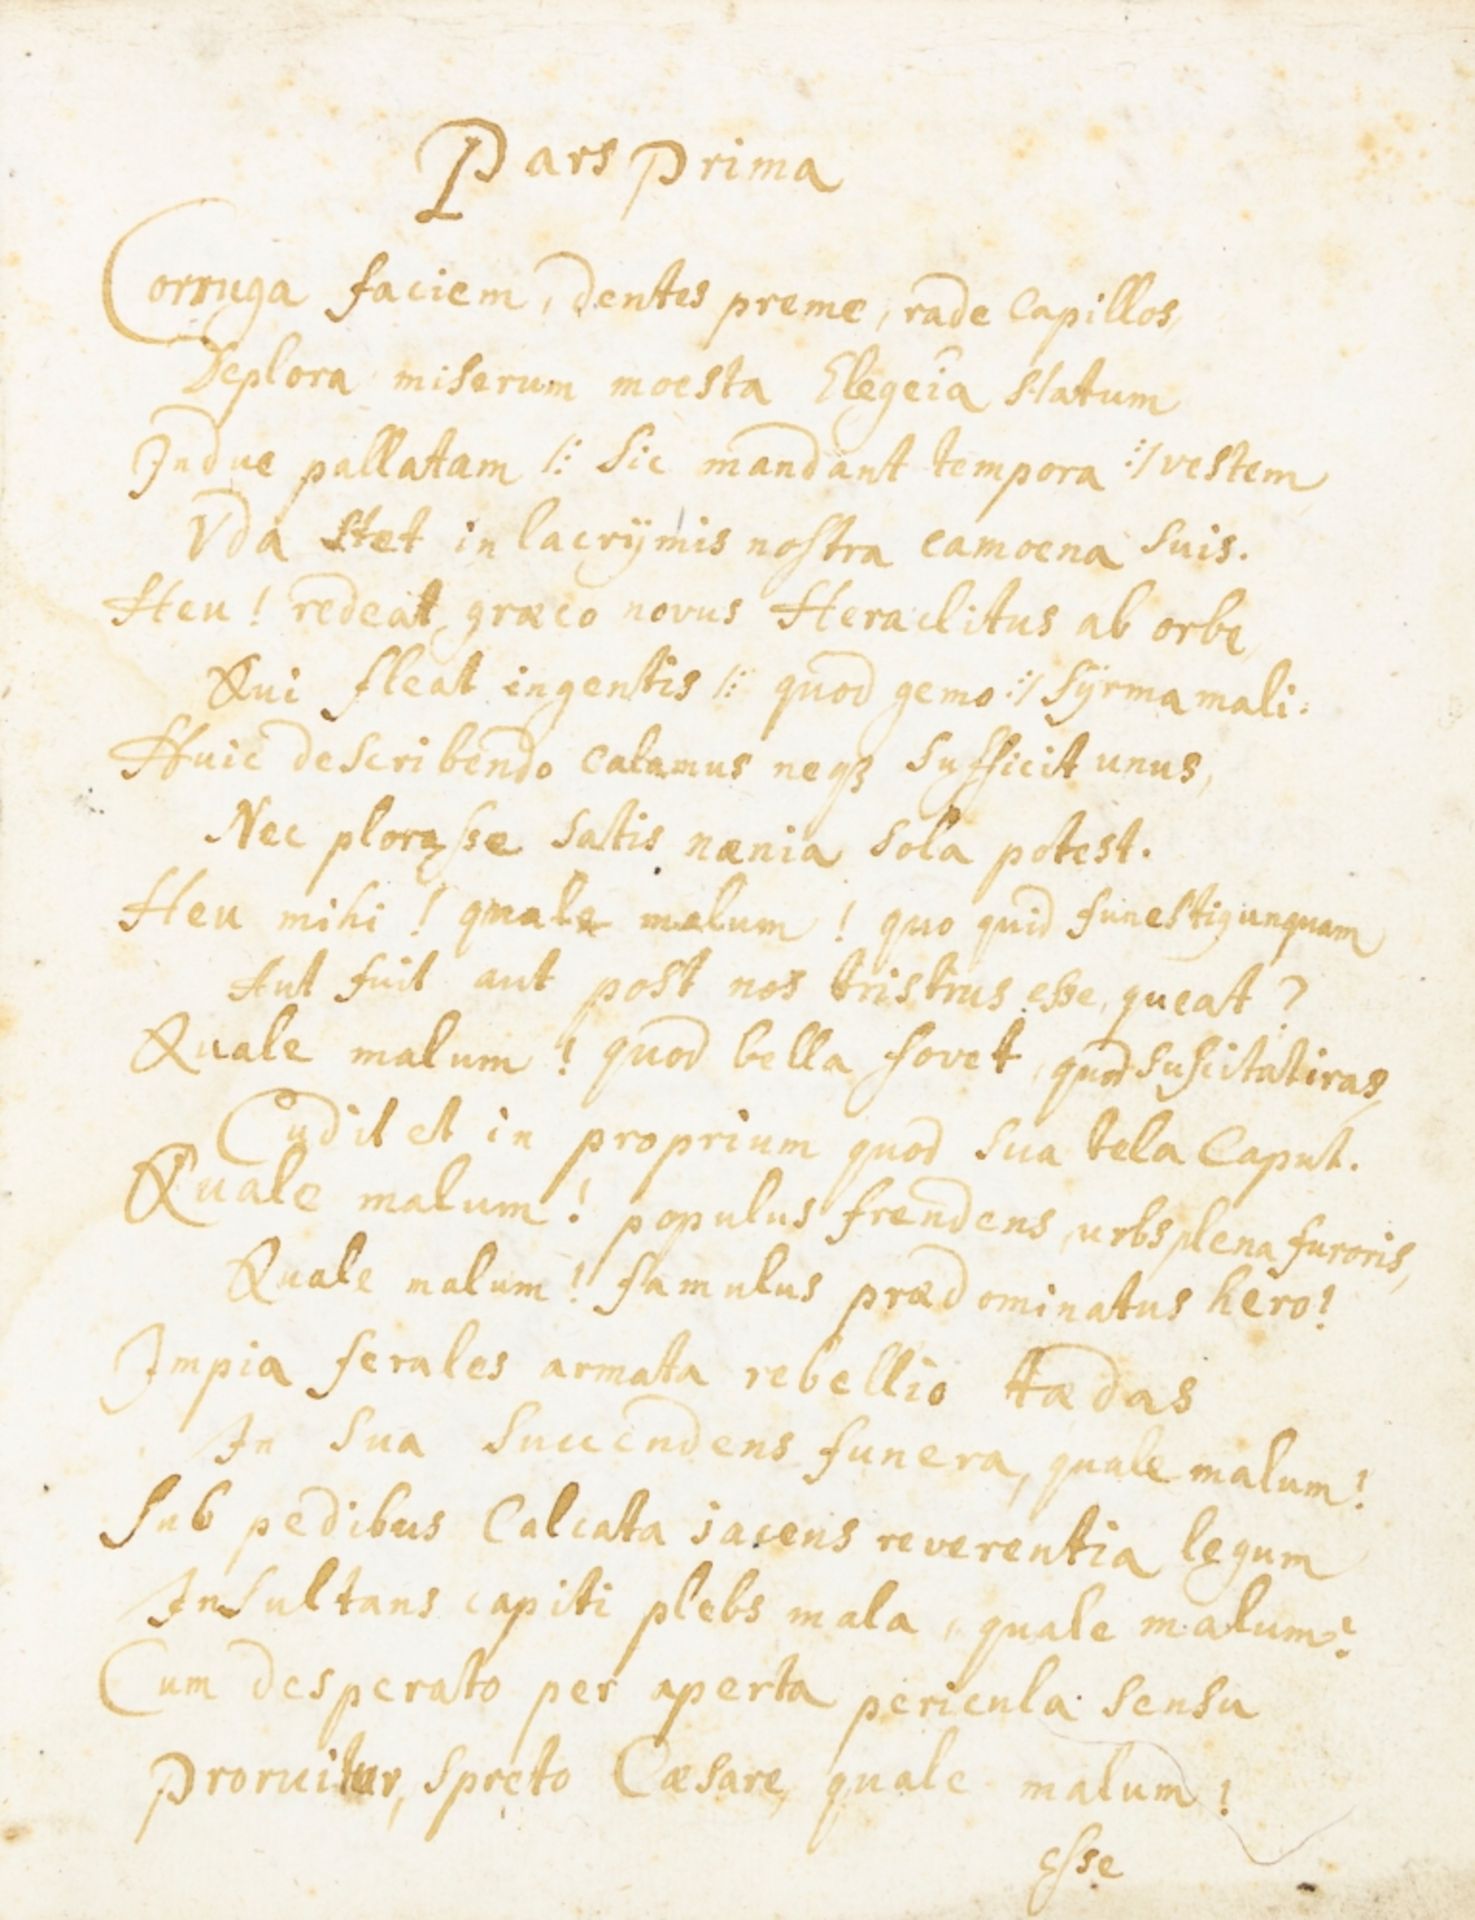 Pars Prima
Corruga faciem, dentes preme, rade capillos,
Deplora miserum moesta Elegeia statum
Indue pallatam /: sic mandant tempora :/ vestem,
Vda stet in lacrÿmis nostra camoena suis.
Heu! redeat, græco novus Heraclitus ab orbe,
Qui fleat ingentis /: quod gemo :/ sÿrma mali.
Huic describendo calamus neqз sufficit unus,
Nec plorasse satis nænia sola potest.
Heu mihi! quale malum! quo quid funestiq unquam
Aut fuit aut post nos tristius esse, queat?
Quale malum! quod bella fovet, quod suscitat iras,
Cudit et in proprium quod sua tela caput.
Quale malum! populus frendens, urbs plena furoris,
Quale malum! famulus prædominatus hero!
Impia ferales armata rebellio tædas
In sua succendens funera, quale malum!
Sub pedibus calcata iacens reverentia legum
Insultans capiti plebs mala, quale malum?
Cum desperato per aperta pericula sensu
Proruitur, spreto Cæsare, quale malum!
esse